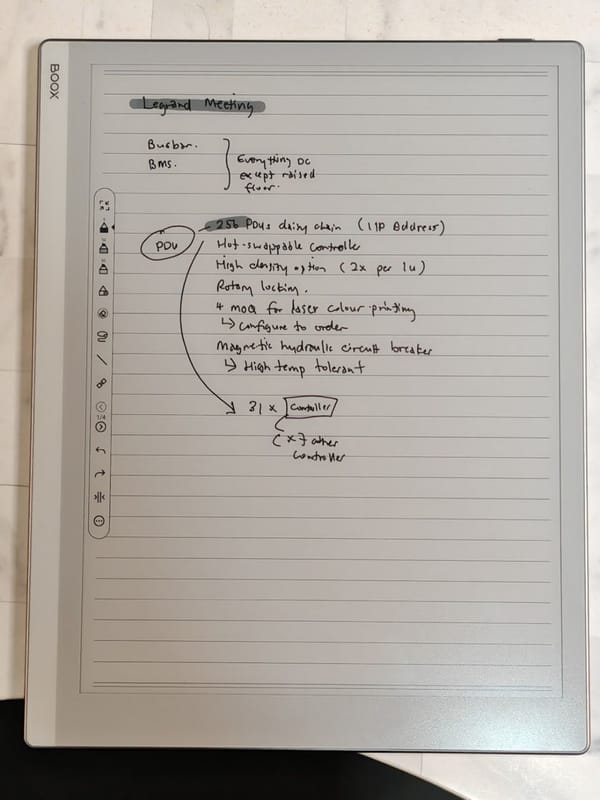 BOOX
Legrand Meeting
Busbar.
BMS.
Everything DC
except raised
floor.
PDU
256 PDUs daisy chain (1 IP Address)
Hot-swappable controller
High density option (2x per 1u)
Rotary locking.
4 MOQ for laser colour printing
↳ configure to order
Magnetic hydraulic circuit breaker
↳ High temp tolerant
31 x controller
x 7 other
controller
1/4